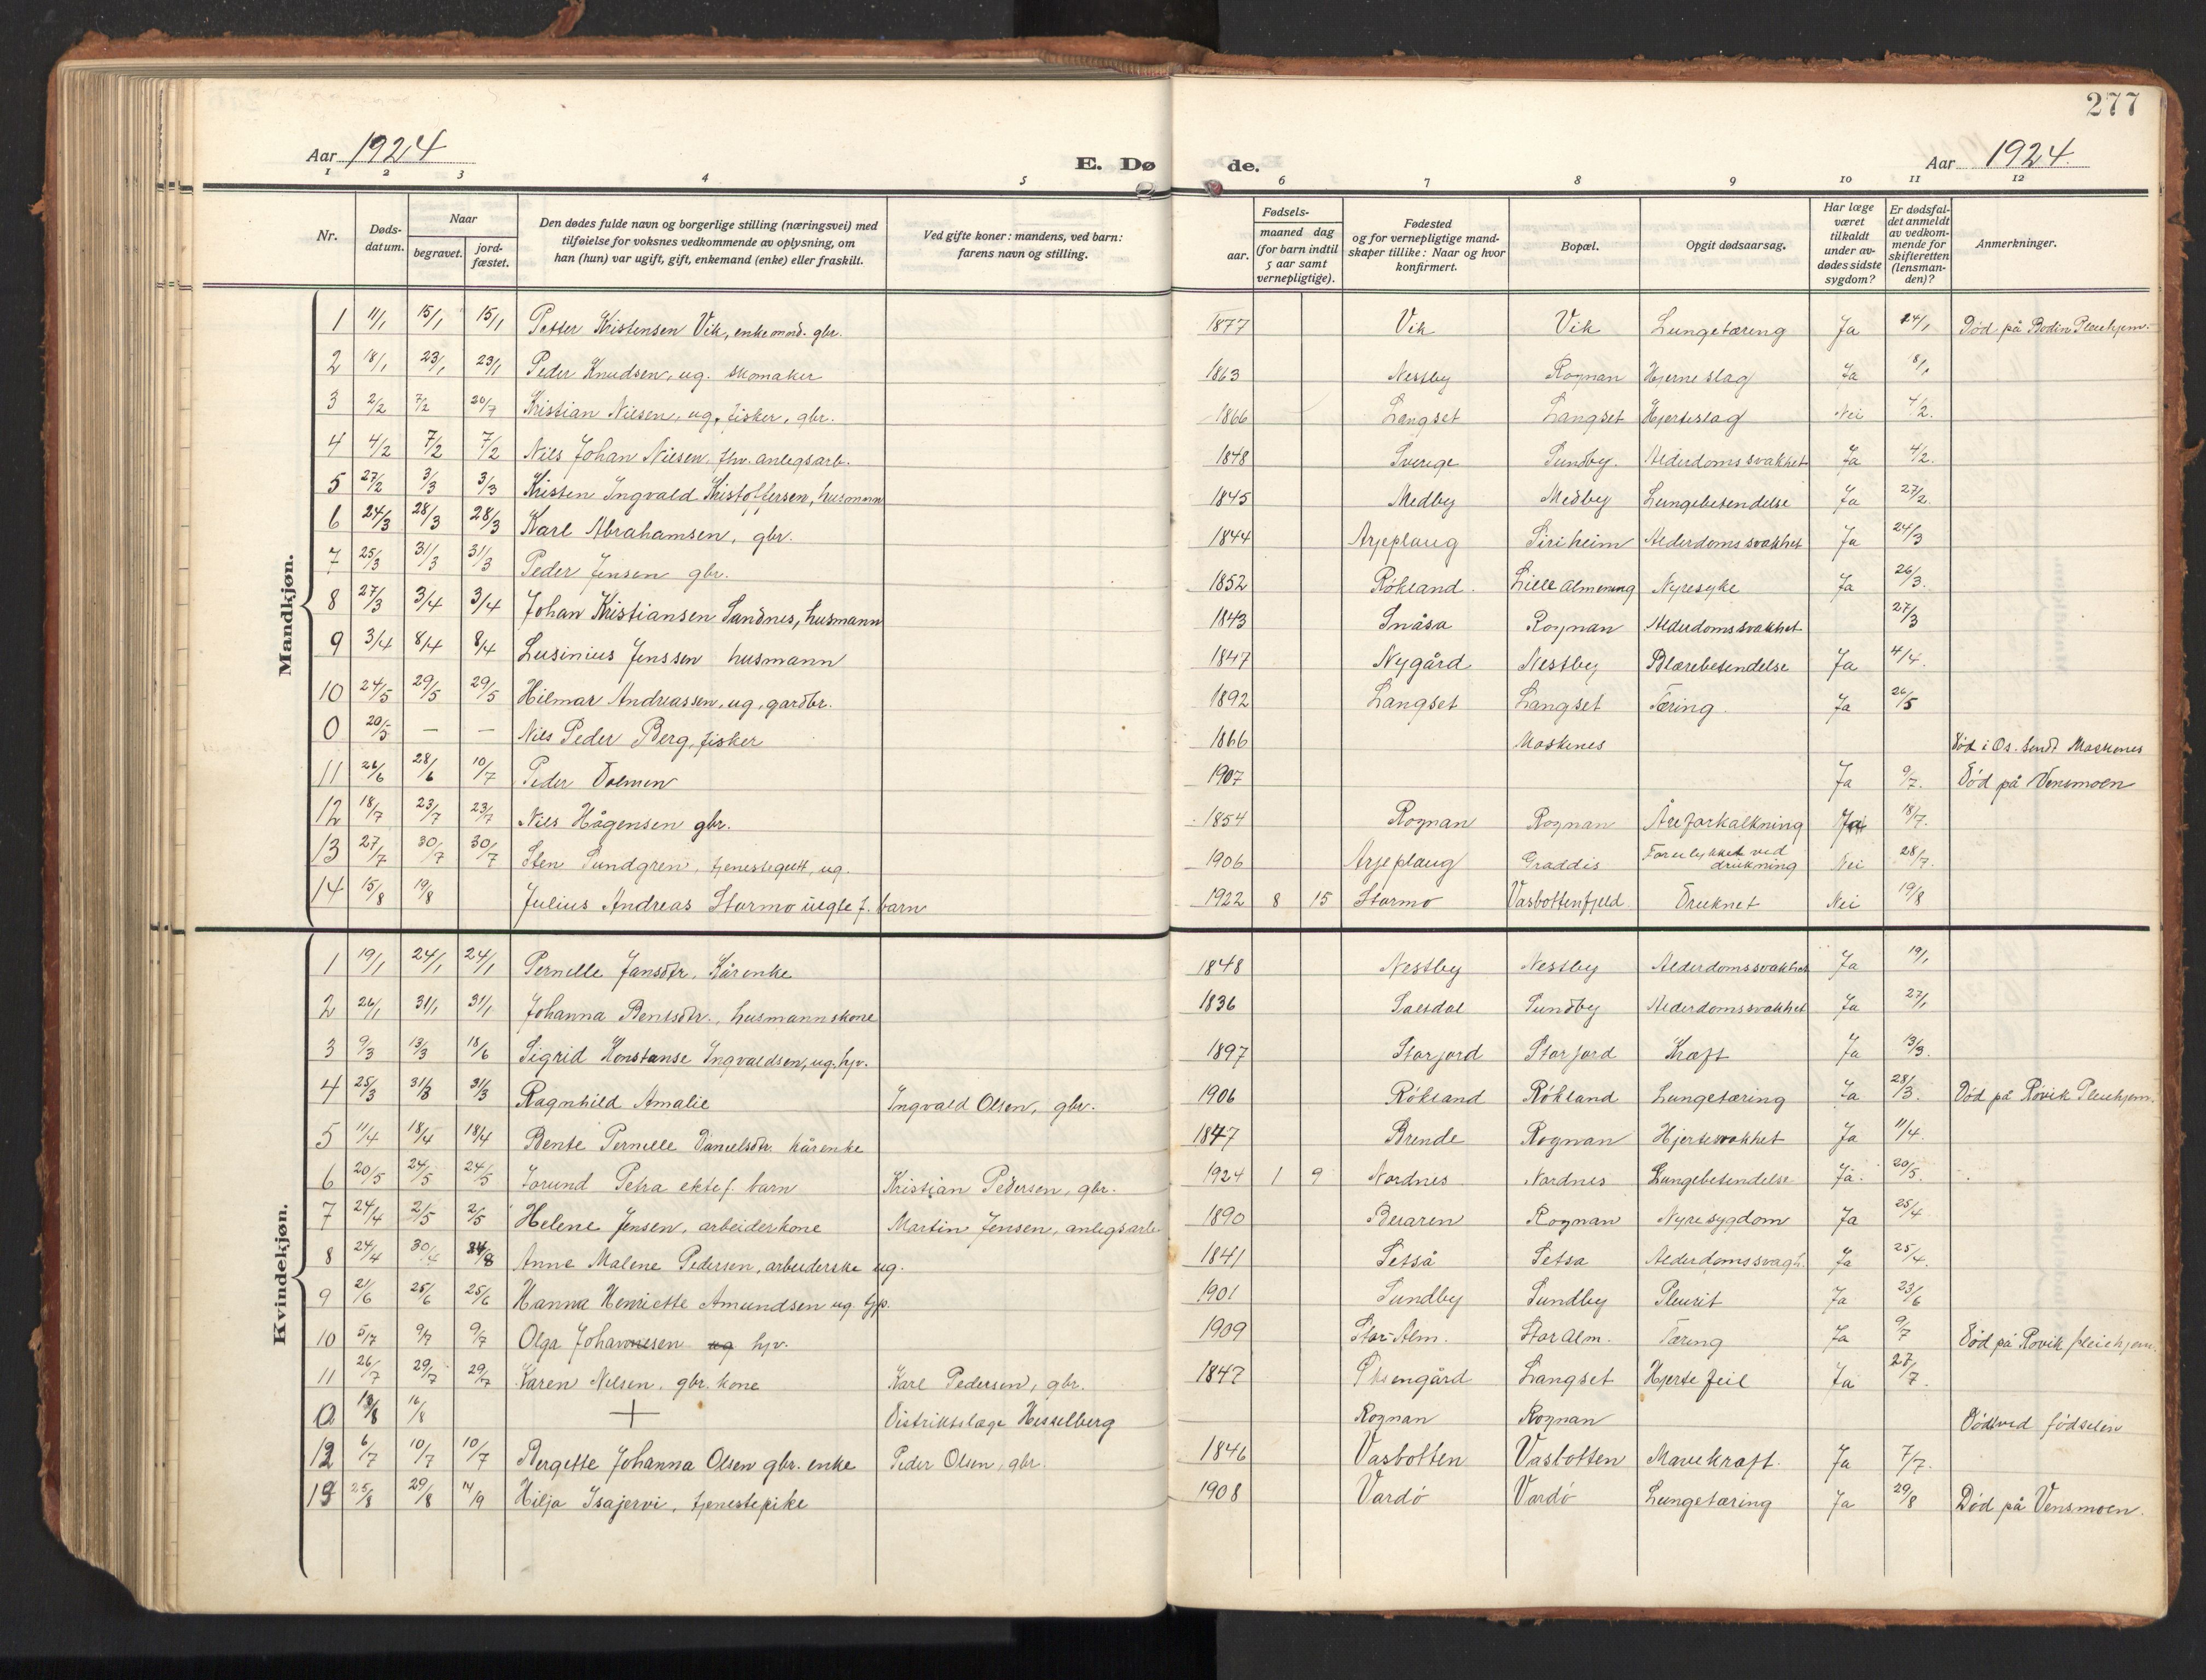 277
Aar 1924
E. Dø
de.
Aar 1924.
1 2 3 4 5 6 7 8 9 10 11 12
Nr.
Døds-
datum.
Naar
begravet.
jord-
fæstet.
Den dødes fulde navn og borgerlige stilling (næringsvei) med
tilføielse for voksnes vedkommende av oplysning, om
han (hun) var ugift, gift, enkemand (enke) eller fraskilt.
Ved gifte koner: mandens, ved barn:
farens navn og stilling.
Fødsels-
aar.
maaned dag
(for barn indtil
5 aar samt
vernepligtige).
Fødested
og for vernepligtige mand-
skaper tillike: Naar og hvor
konfirmert.
Bopæl.
Opgit dødsaarsag.
Har læge
været
tilkaldt
under av-
dødes sidste
sygdom?
Er dødsfal-
det anmeldt
av vedkom-
mende for
skifteretten
(lensman-
den)?
Anmerkninger.
Mandkjøn.
1 11/1 15/1 15/1 Petter Kristensen Vik, enkemand. gbr. 1877 Vik Vik Lungetæring Ja 24/1 Død på Bodin Pleiehjem.
2 18/1 23/1 23/1 Peder Knudsen, ug. skomaker 1863 Nestby Rognan Hjerneslag Ja 8/1
3 2/2 7/2 20/7 Kristian Nilsen, ug, fisker, gbr. 1866 Langset Langset Hjerteslag Nei 4/2.
4 4/2 7/2 7/2 Nils Johan Nilsen fhv. anlegsarb. 1848 Sverige Sundby. Alderdomssvakhet Ja 4/2.
5 27/2 3/3 3/3 Kristen Ingvald Kristoffersen, husmann 1845 Medby Medby Lungebetendelse Ja 27/2.
6 24/3 28/3 28/3 Karl Abrahamsen, gbr. 1844 Arjeplaug Siriheim Alderdomssvakhet Ja 24/3
7 25/3 31/3 31/3 Peder Jensen gbr. 1852 Røkland. Lille Almening Nyresyke Ja 26/3.
8 27/3 3/4 3/4 Johan Kristiansen Sandnes, husmann 1843 Snåsa Rognan Alderdomssvakhet 27/3
9 3/4 8/4 8/4 Lusinius Jenssen husmann 1847 Nygård Nestby Blærebetendelse Ja 4/4.
10 24/5 29/5 29/5 Hilmar Andreassen, ug, gardbr. 1892 Langset Langset Tæring. Ja 26/5
0 20/5 — — Nils Peder Berg, fisker 1866 Moskenes Død i Os. sendt Moskenes
11 26/6 28/6 10/7 Peder Dolmen 1907 Ja 9/7. Død på Vensmoen
12 18/7 23/7 23/7 Nils Hågensen gbr. 1854 Rognan Rognan Åreforkalkning Ja 18/7.
13 27/7 30/7 30/7 Sten Sundgren, tjenestegutt, ug. 1906 Arjeplaug Graddis Forulykket ved drukning Nei 28/7.
14 15/8 19/8 Julius Andreas Stormo uegte f. barn 1922 8 15 Stormo Vasbottenfjeld Druknet Nei 19/8
Kvindekjøn.
1 19/1 24/1 24/1 Pernille Jansdtr. Kårenke 1848 Nestby Nestby Alderdomssvakhet Ja 19/1
2 26/1 31/1 31/1 Johanna Bentsdtr., husmannskone 1836 Saltdal Sundby Alderdomssvakhet Ja 27/1
3 9/3 13/3 18/6 Sigrid Konstanse Ingvaldsen, ug. hjv. 1897 Storjord Storjord Kræft Ja 13/3.
4 25/3 31/3 31/3 Ragnhild Amalie Ingvald Olsen, gbr. 1906 Røkland Røkland Lungetæring Ja 28/3. Død på Røvik Pleiehjem.
5 11/4 18/4 18/4 Bente Pernille Danielsdtr. kårenke 1847 Brende Rognan Hjertesvakhet Ja 11/4.
6 20/5 24/5 24/5 Jorund Petra ektef. barn Kristian Pedersen, gbr. 1924 1 9 Nordnes Nordnes Lungebetendelse Ja. 20/5.
7 24/4 2/5 2/5 Helene Jensen, arbeiderkone Martin Jensen, anlegsarb. 1890 Beiaren Rognan Nyresygdom Ja 25/4.
8 24/4 30/4 24/8 Anne Malene Pedersen, arbeiderske ug. 1841 Setså Setsa Alderdomssvagh. Ja 25/4.
9 21/6 25/6 25/6 Hanna Henriette Amundsen ug. tjp. 1901 Sundby Sundby Pleurit Ja 23/6
10 5/7 9/7 9/7 Olga Johannesen ug hjv. 1909 Stor-Alm. Stor Alm. Tæring Ja 9/7 Død på Røvik pleiehjem.
11 26/7 29/7 29/7 Karen Nilsen, gbr. kone Karl Pedersen, gbr. 1847 Langset Hjertefeil Ja 27/7.
0 13/8 16/8 + Distriktslæge Hesselberg Rognan Rognan Død ved fødselen
12 6/7 10/7 10/7 Bergette Johanna Olsen gbr. enke Peder Olsen, gbr. 1846 Vasbotten Vasbotten Mavekræft. Ja 7/7.
13 25/8 29/8 14/9 Hilja Isajervi, tjenestepike 1908 Vardø Vardø Lungetæring Ja 29/8 Død på Vensmoen.